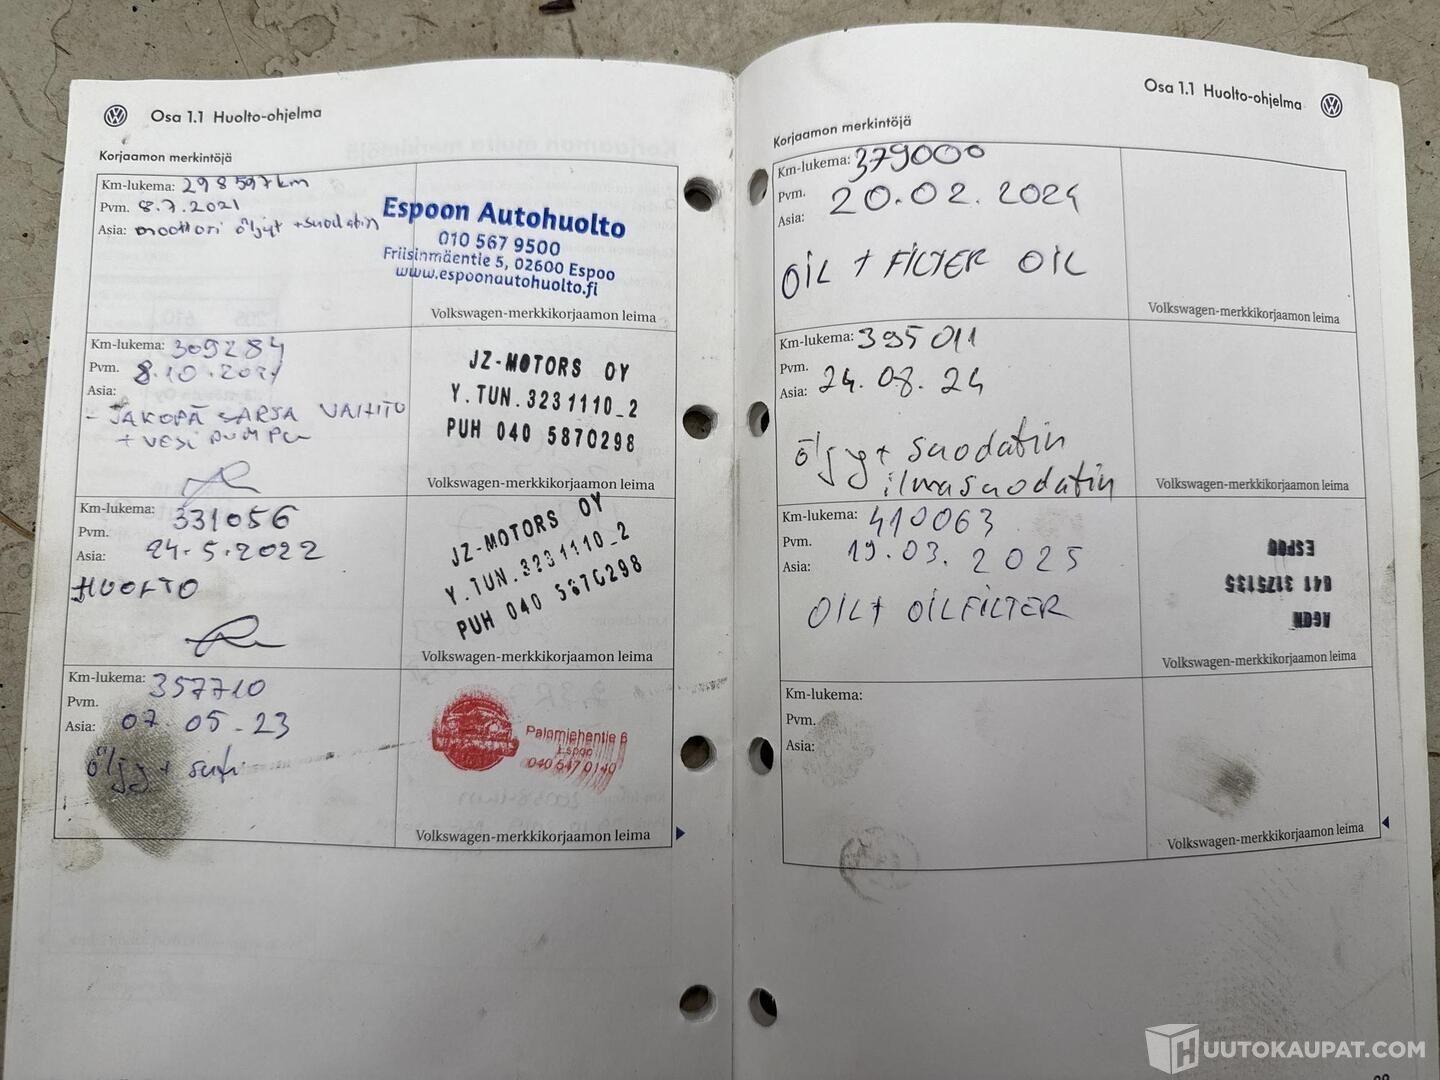 Osa 1.1 Huolto-ohjelma
Korjaamon merkintöjä
Km-lukema: 298597km
Pvm. 8.7.2021
Asia: moottori öljyt + suodatin
Espoon Autohuolto
010 567 9500
Friisinmäentie 5, 02600 Espoo
www.espoonautohuolto.fi
Volkswagen-merkkikorjaamon leima
Km-lukema: 309284
Pvm. 8.10.2021
Asia:
- JAKOPÄ SARJA VAIHTO
+ VESI PUMPU
JZ-MOTORS OY
Y.TUN.3231110_2
PUH 040 5870298
Volkswagen-merkkikorjaamon leima
Km-lukema: 331056
Pvm.
Asia: 24.5.2022
HUOLTO
JZ-MOTORS OY
Y.TUN.3231110_2
PUH 040 5870298
Volkswagen-merkkikorjaamon leima
Km-lukema: 357710
Pvm.
Asia: 07.05.23
öljy +
Palomiehentie 6
Espoo
040 547 0140
Volkswagen-merkkikorjaamon leima
Osa 1.1 Huolto-ohjelma
Korjaamon merkintöjä
Km-lukema: 379000
Pvm. 20.02.2024
Asia:
OIL + FILTER OIL
Volkswagen-merkkikorjaamon leima
Km-lukema: 395011
Pvm.
Asia: 24.08.24
öljy + suodatin
ilmasuodatin
Volkswagen-merkkikorjaamon leima
Km-lukema: 410063
Pvm. 19.03.2025
Asia:
OIL + OILFILTER
ESPOO
041 3175135
AGON
Volkswagen-merkkikorjaamon leima
Km-lukema:
Pvm.
Asia:
Volkswagen-merkkikorjaamon leima
HUUTOKAUPAT.COM